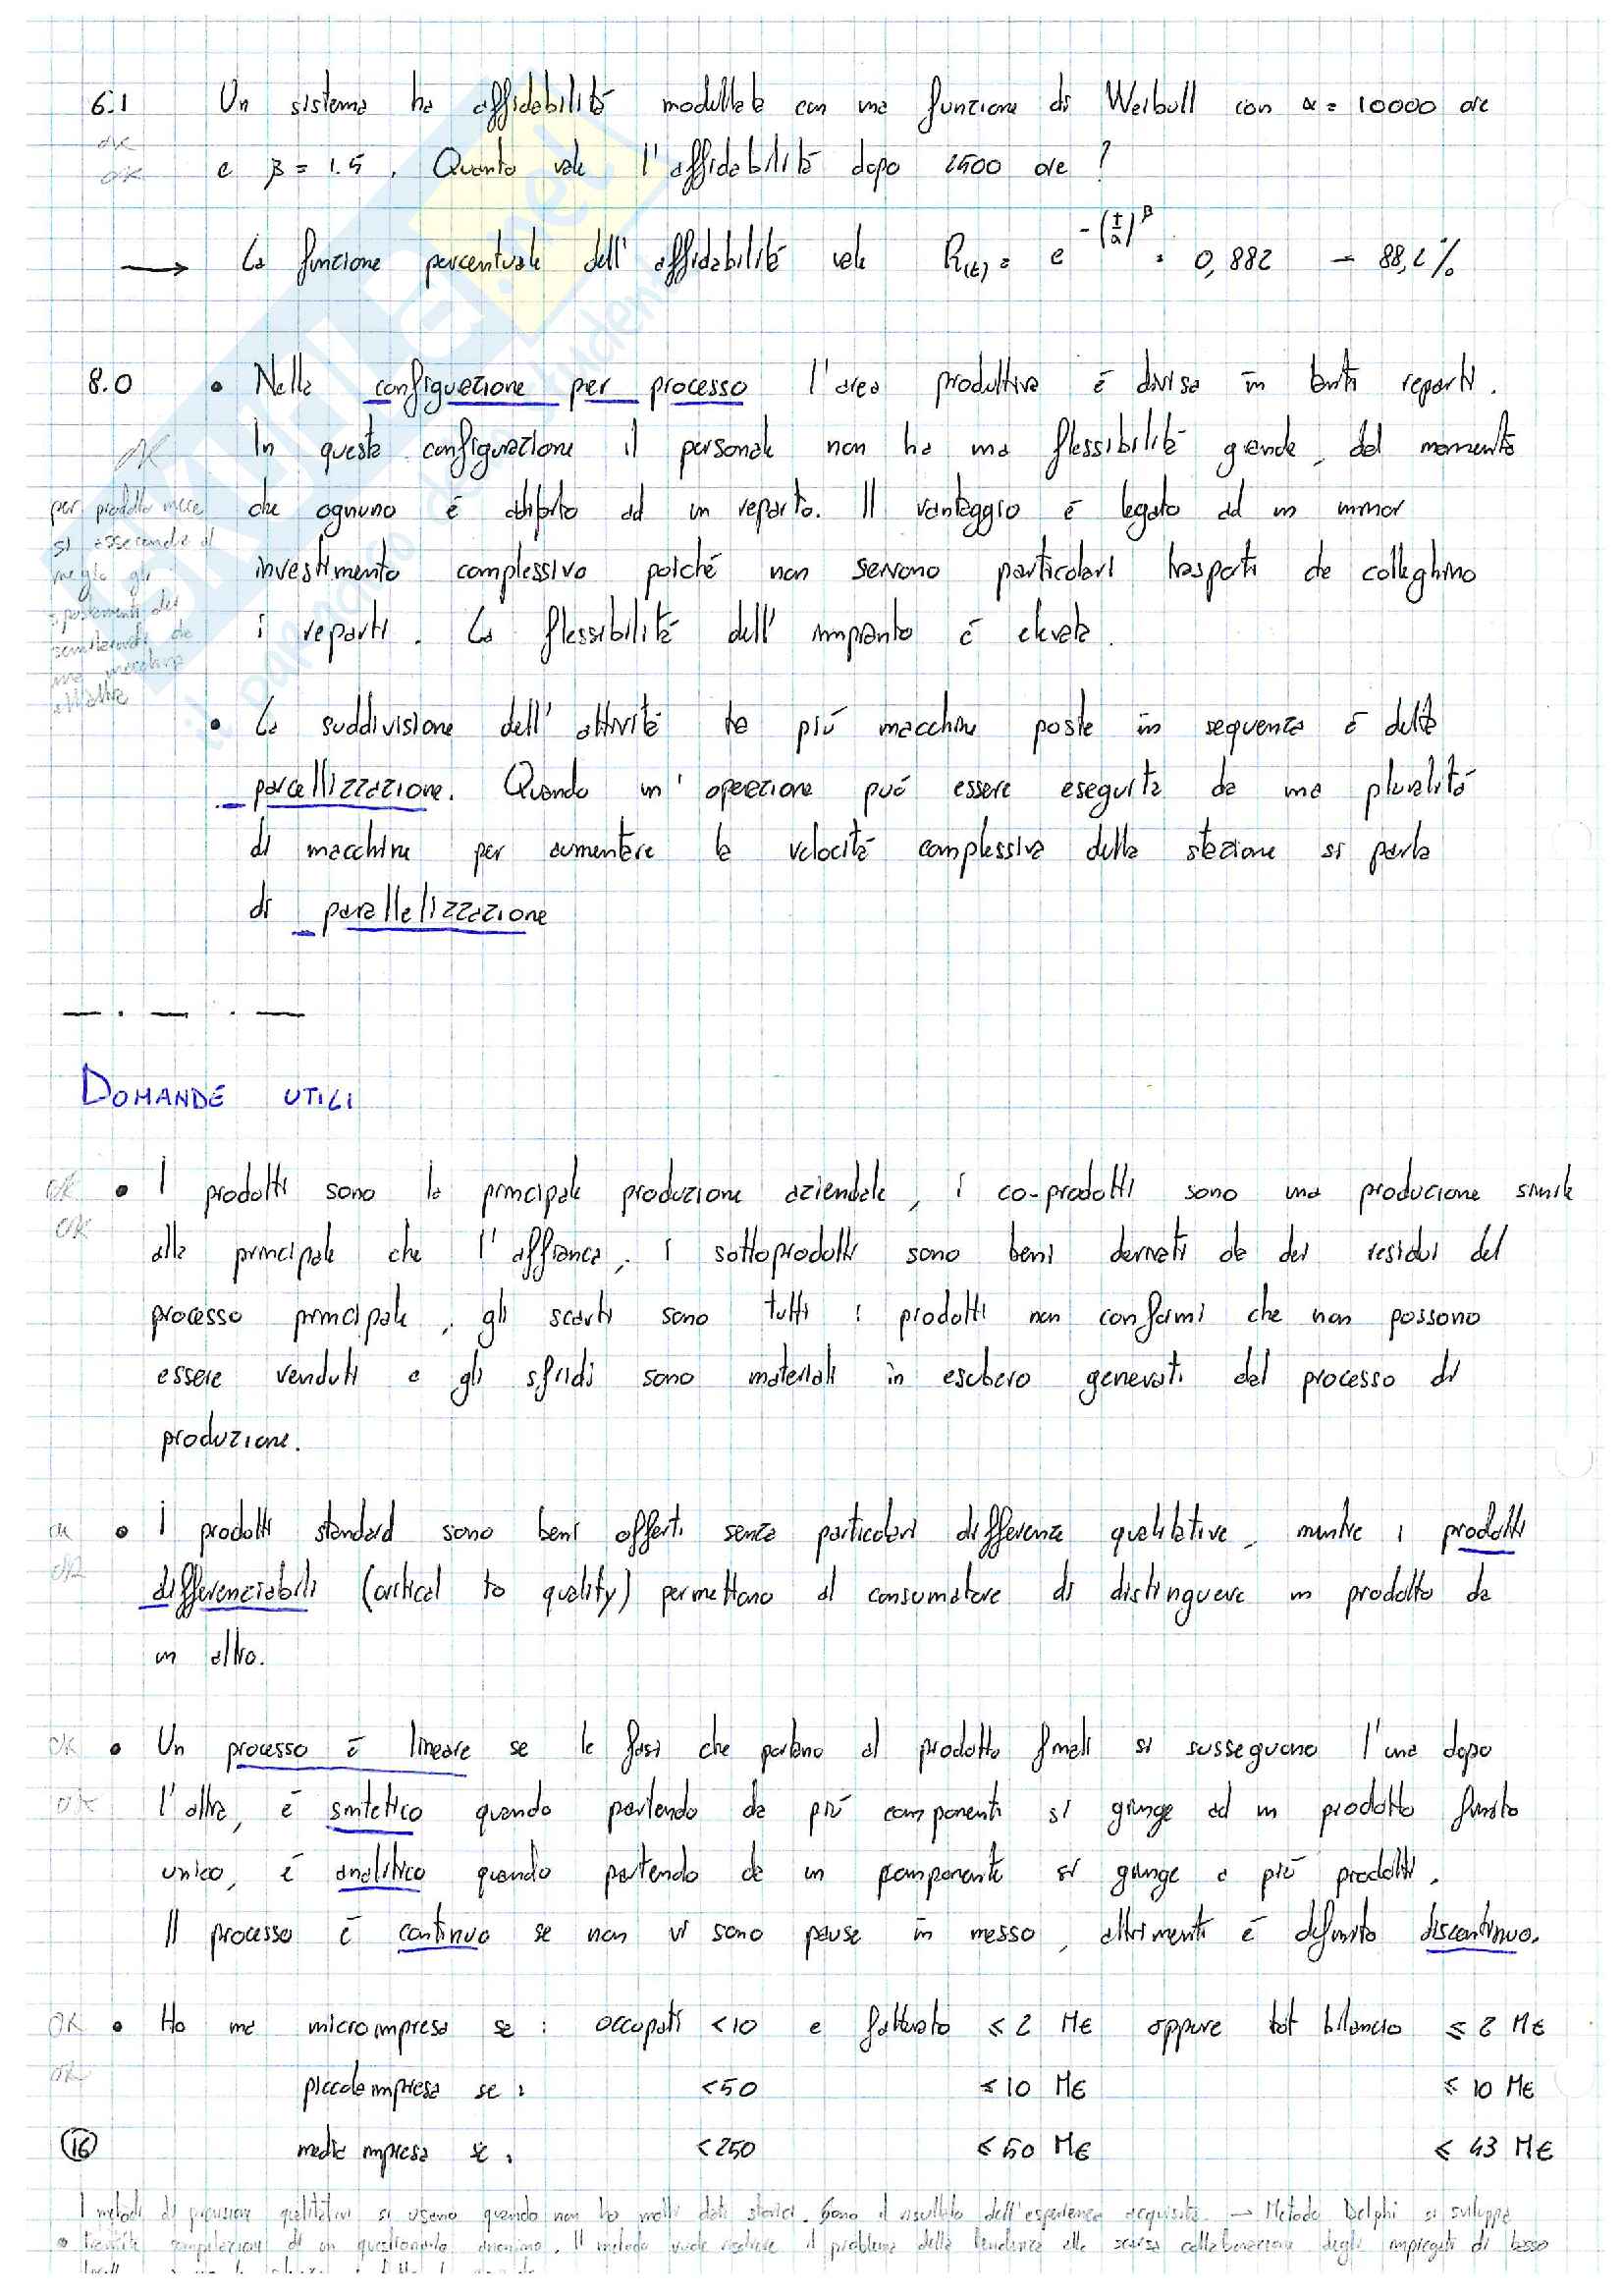 6.1 Un sistema ha affidabilità modellata con una funzione di Weibull con α = 10000 ore
OK
OK e β = 1.5 . Quanto vale l'affidabilità dopo 2500 ore ?
→ La funzione percentuale dell'affidabilità vale R(t) = e^-(t/α)^β = 0,882 – 88,2%
8.0 • Nella configurazione per processo l'area produttiva è divisa in tanti reparti.
OK In questa configurazione il personale non ha una flessibilità grande, dal momento
che ognuno è adibito ad un reparto. Il vantaggio è legato ad un minor
investimento complessivo poiché non servono particolari trasporti che colleghino
i reparti. La flessibilità dell'impianto è elevata.
per prodotto invece
si asseconda al
meglio gli
spostamenti dei
semilavorati da
una macchina
all'altra
• La suddivisione dell'attività tra più macchine poste in sequenza è detta
parcellizzazione. Quando un'operazione può essere eseguita da una pluralità
di macchine per aumentare la velocità complessiva della stazione si parla
di parallelizzazione
DOMANDE UTILI
OK • I prodotti sono la principale produzione aziendale, i co-prodotti sono una produzione simile
OK alla principale che l'affianca, i sottoprodotti sono beni derivati da dei residui del
processo principale, gli scarti sono tutti i prodotti non conformi che non possono
essere venduti e gli sfridi sono materiali in esubero generati dal processo di
produzione.
OK • I prodotti standard sono beni offerti senza particolari differenze qualitative, mentre i prodotti
OK differenziabili (critical to quality) permettono al consumatore di distinguere un prodotto da
un altro.
OK • Un processo è lineare se le fasi che portano al prodotto finali si susseguono l'una dopo
OK l'altra, è sintetico quando partendo da più componenti si giunge ad un prodotto finito
unico, è analitico quando partendo da un componente si giunge a più prodotti.
Il processo è continuo se non vi sono pause in messo, altrimenti è definito discontinuo.
OK • Ho una microimpresa se : occupati <10 e fatturato ≤ 2 M€ oppure tot bilancio ≤ 2 M€
OK piccola impresa se : <50 ≤ 10 M€ ≤ 10 M€
16 media impresa se : <250 ≤ 50 M€ ≤ 43 M€
I metodi di previsione qualitativi si usano quando non ho molti dati storici. Sono il risultato dell'esperienza acquisita. → Metodo Delphi si sviluppa
• tramite compilazione di un questionario anonimo. Il metodo vuole risolvere il problema della tendenza alla scarsa collaborazione degli impiegati di basso